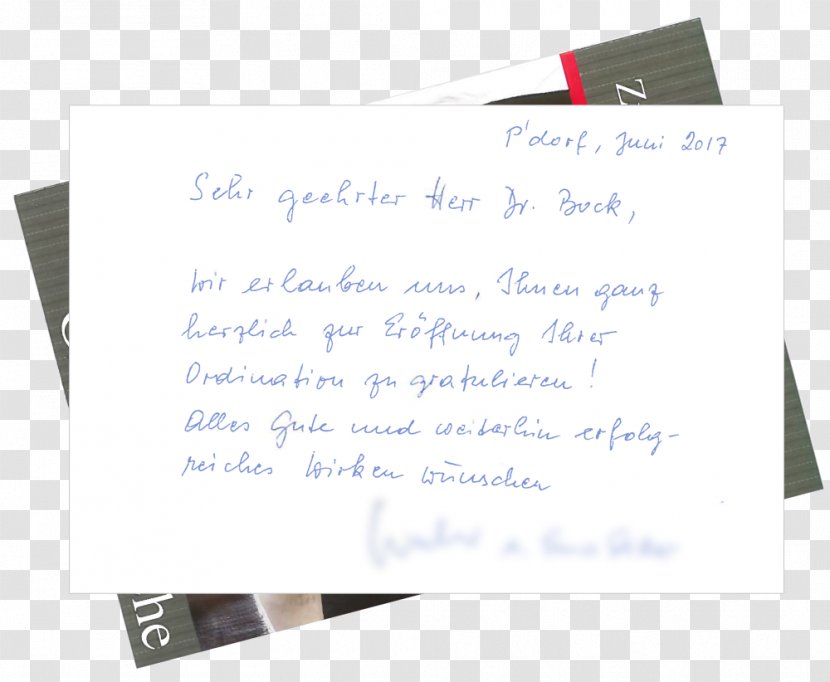 P'dorf, Juni 2017
Sehr geehrter Herr Dr. Bock,
wir erlauben uns, Ihnen ganz
herzlich zur Eröffnung Ihrer
Ordination zu gratulieren!
Alles Gute und weiterhin erfolg-
reiches Wirken wünschen
he